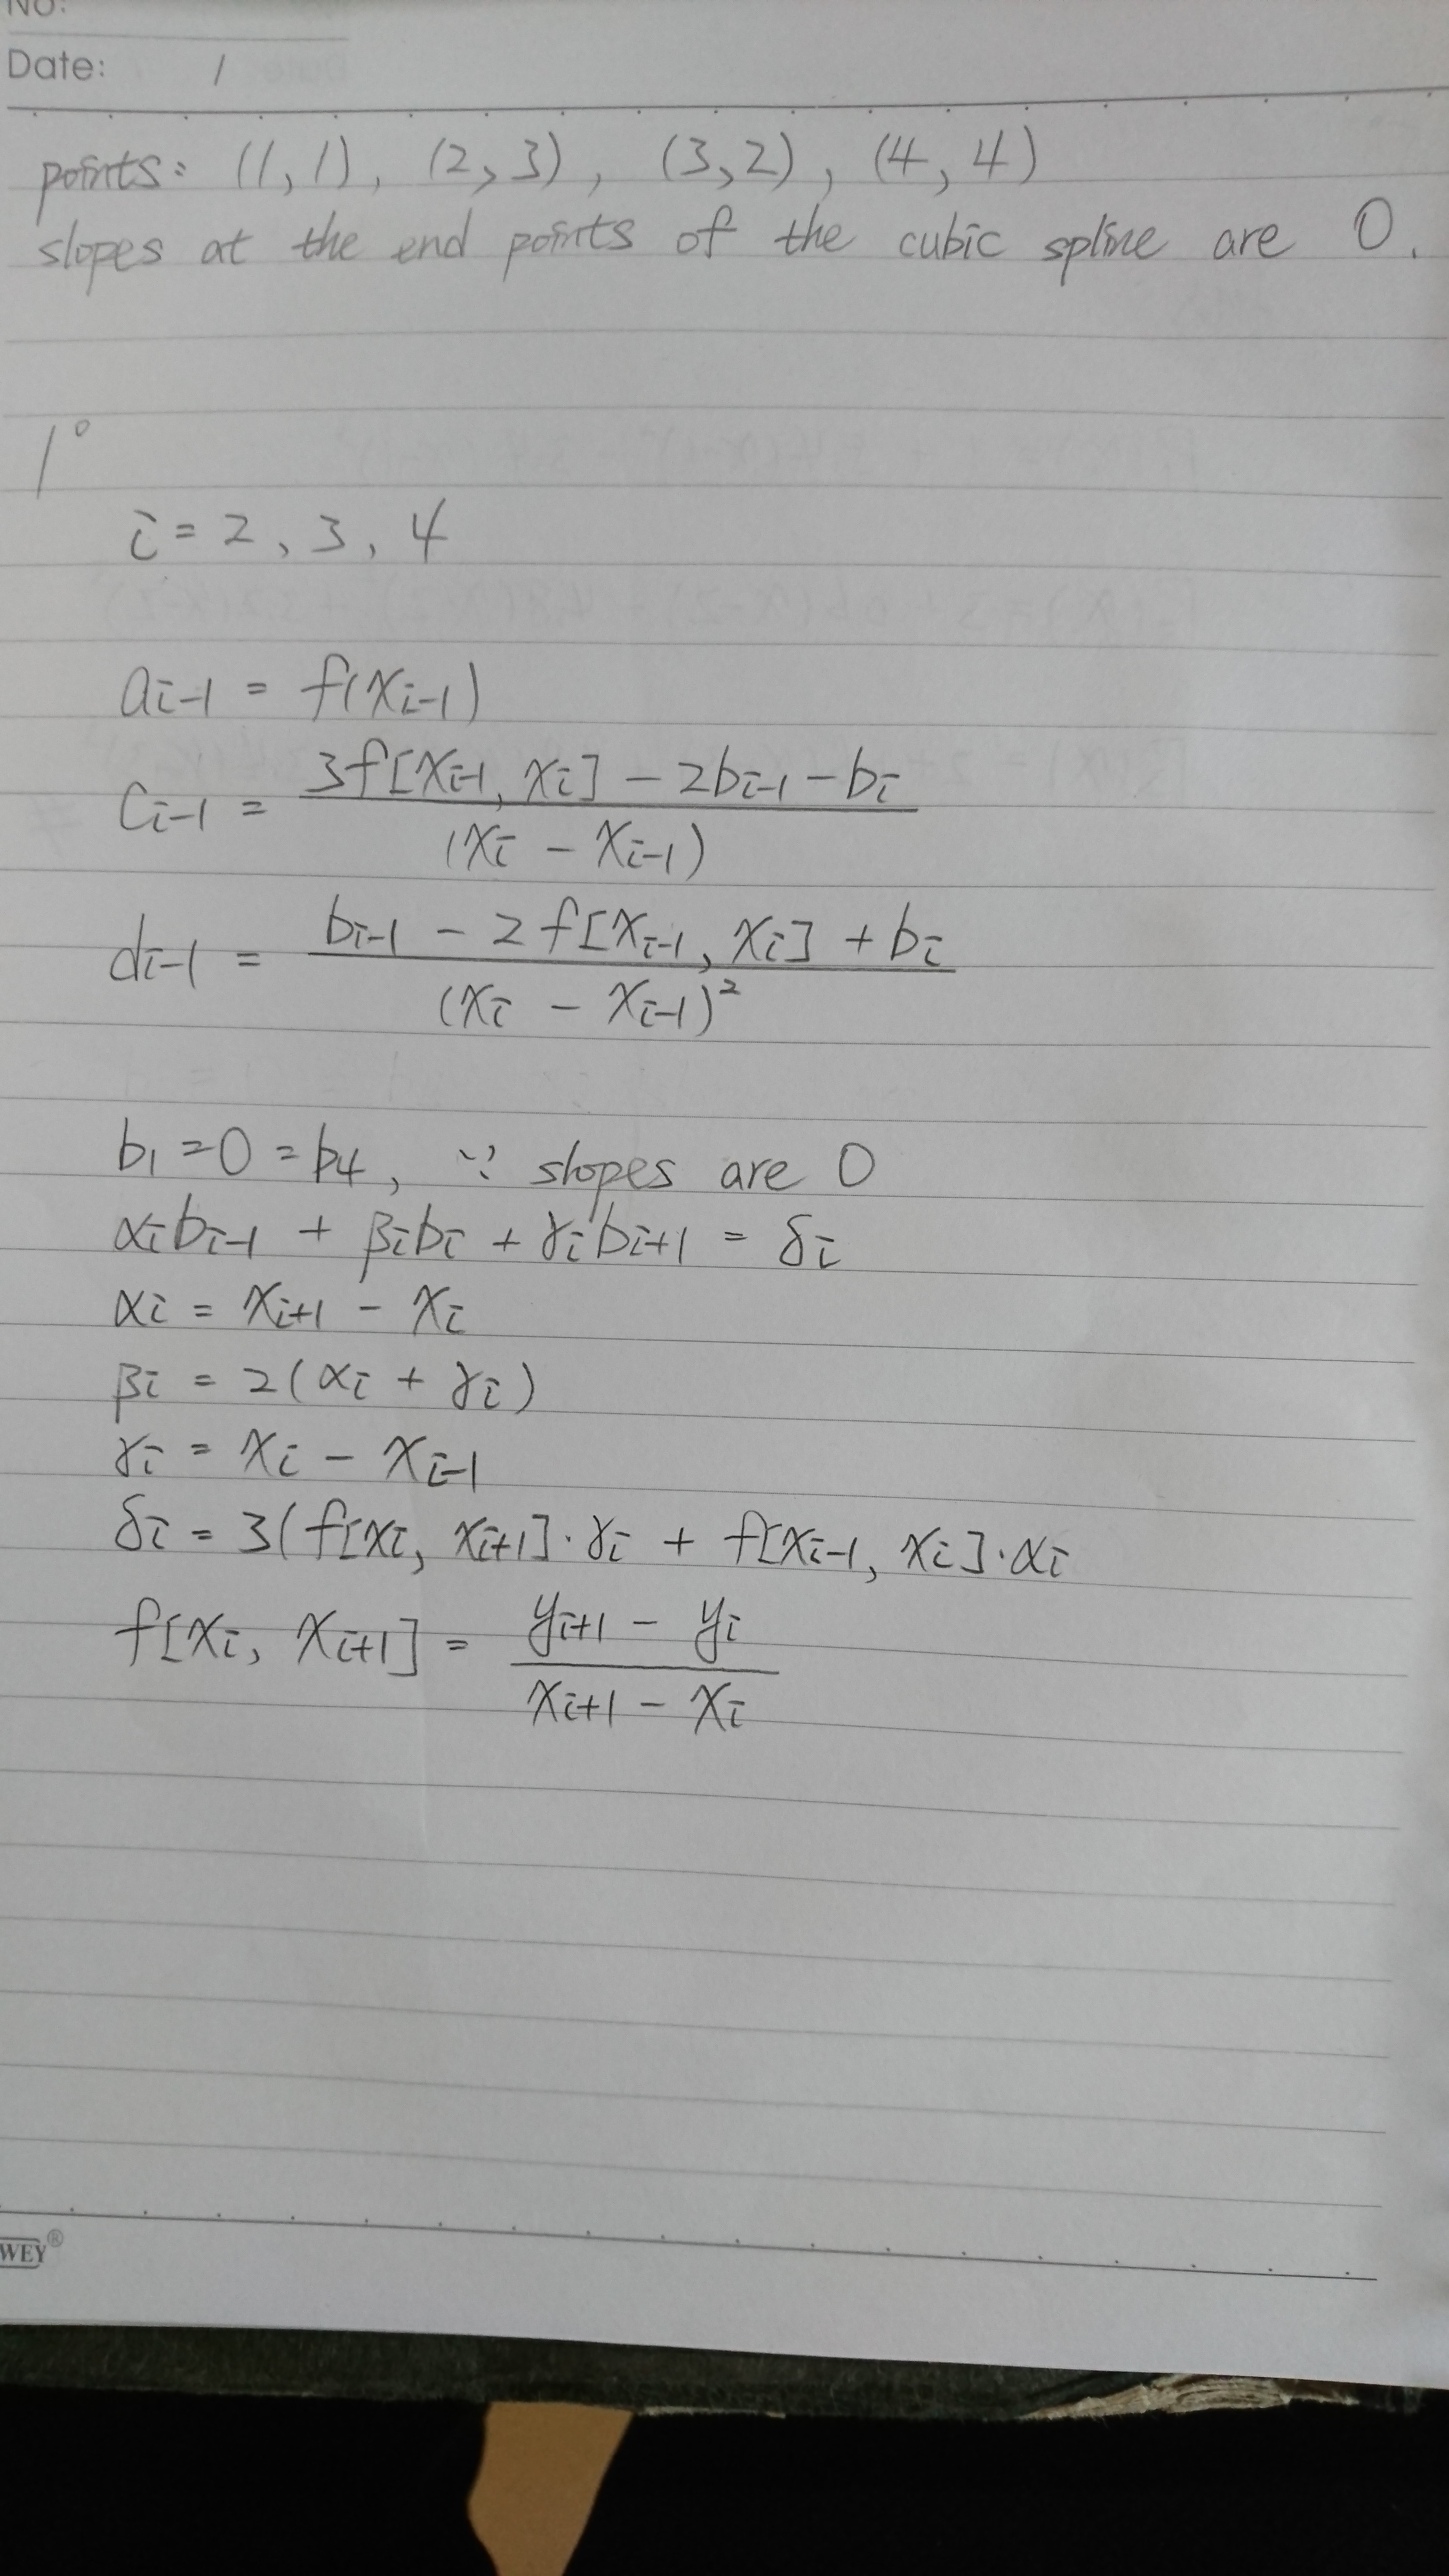 NO:
Date: 1
points: (1,1), (2,3), (3,2), (4,4)
slopes at the end points of the cubic spline are 0.
1°
i = 2, 3, 4
aᵢ₋₁ = f(xᵢ₋₁)
cᵢ₋₁ = (3f[xᵢ₋₁, xᵢ] − 2bᵢ₋₁ − bᵢ) / (xᵢ − xᵢ₋₁)
dᵢ₋₁ = (bᵢ₋₁ − 2f[xᵢ₋₁, xᵢ] + bᵢ) / (xᵢ − xᵢ₋₁)²
b₁ = 0 = b₄, ∵ slopes are 0
αᵢbᵢ₋₁ + βᵢbᵢ + γᵢbᵢ₊₁ = δᵢ
αᵢ = xᵢ₊₁ − xᵢ
βᵢ = 2(αᵢ + γᵢ)
γᵢ = xᵢ − xᵢ₋₁
δᵢ = 3(f[xᵢ, xᵢ₊₁]·γᵢ + f[xᵢ₋₁, xᵢ]·αᵢ
f[xᵢ, xᵢ₊₁] = (yᵢ₊₁ − yᵢ) / (xᵢ₊₁ − xᵢ)
WEY®